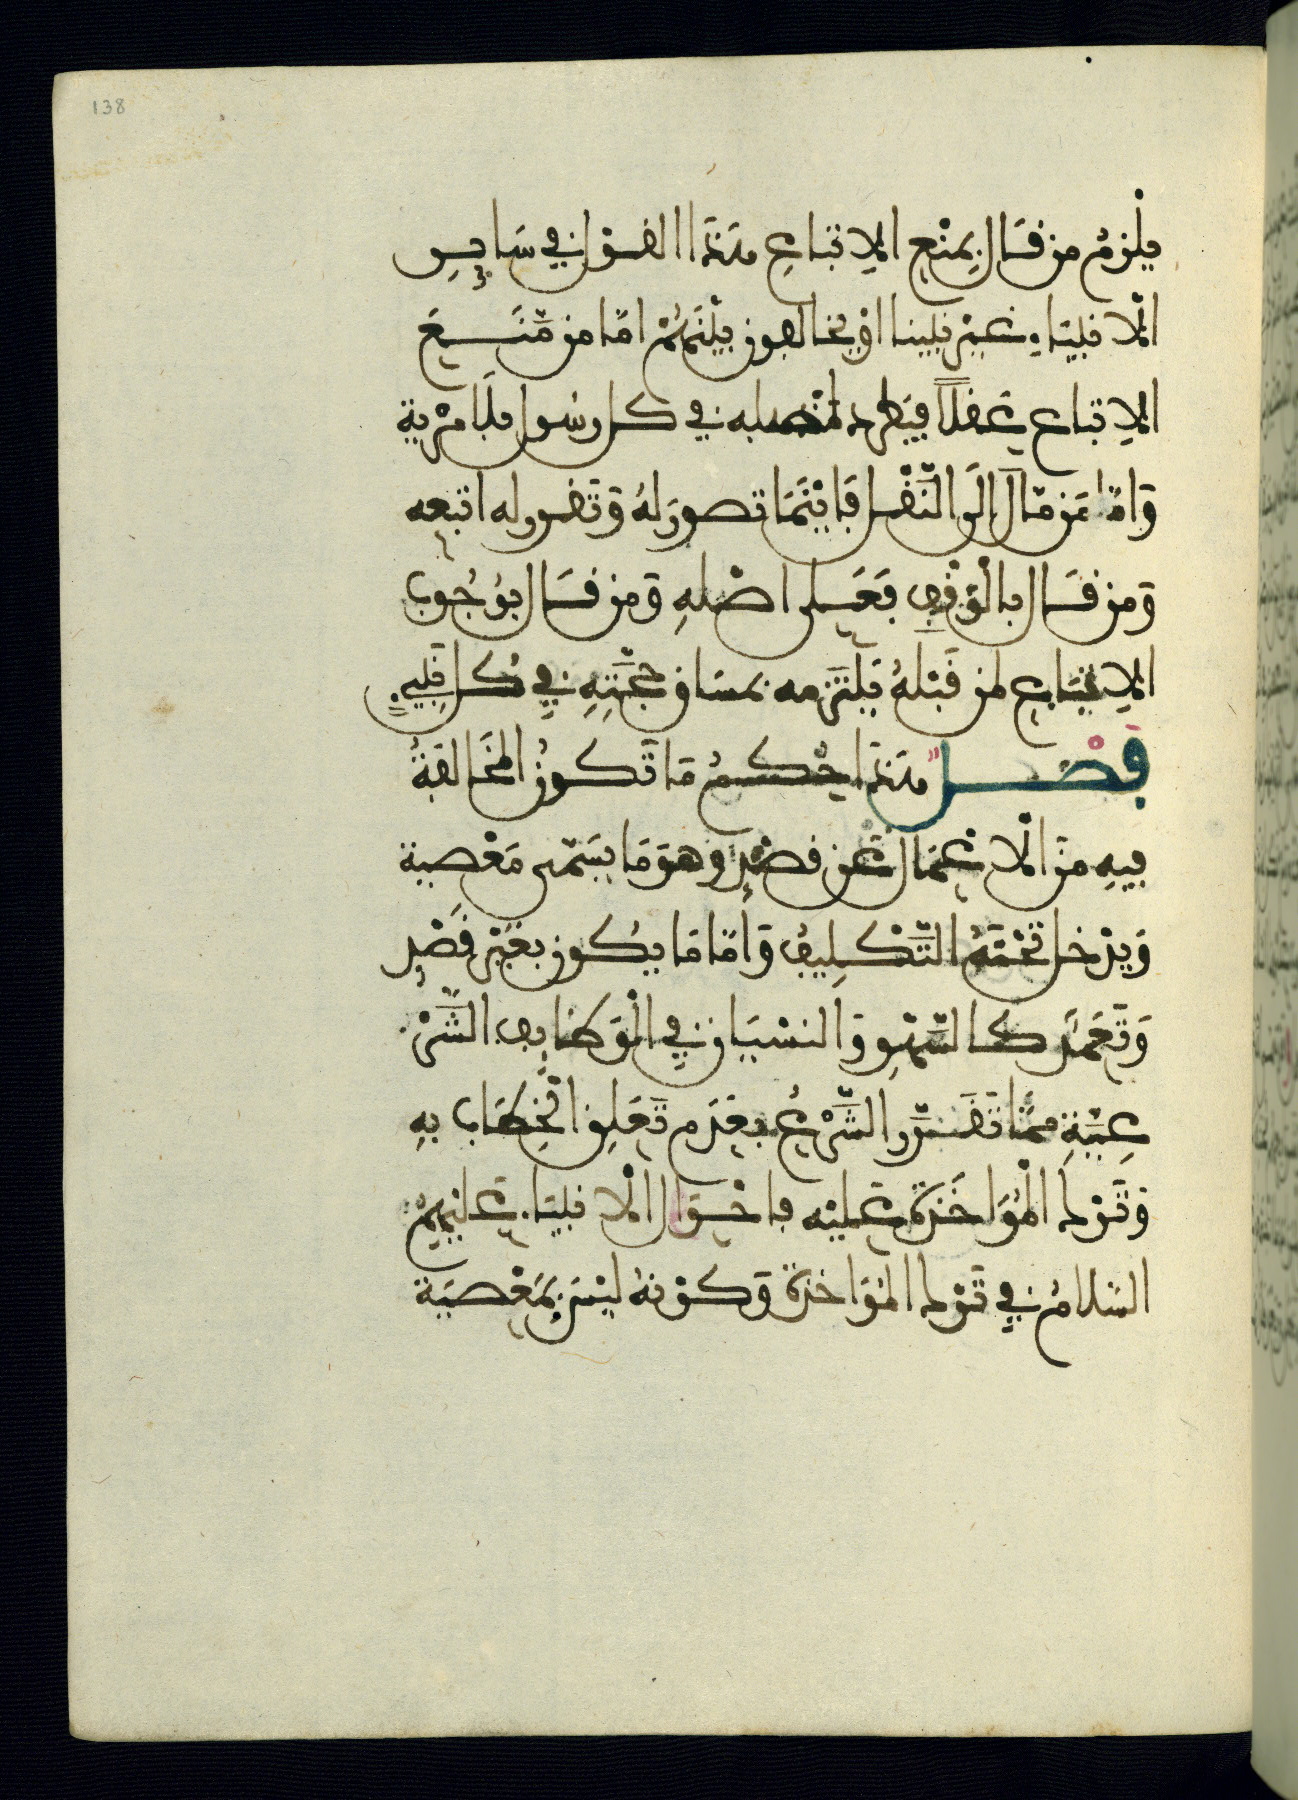 138
يلزمُ من قَال بِمنْعِ الاِتباعِ هذَا القوْل في سَايِرِ
الْانبيَاءِ غيرْ نبينا اوْ يخالفون بيْنَهُمْ امّا من مَّنَعَ
الاِتباع عَقلاً فيَطرد اصله في كل رسُول بلَا مرْية
وَامّا مَن مّالَ الَى النَّقْل فَايْنَمَا تصور لهُ وَتَقرر له اتبعه
وَمن قَال بالْوَقْفِ فَعَلى اصْلهِ وَمن قَال بوُجُوب
الاِتبَاعِ لمن قَبْلهُ يَلْتَزمه بمسَاق حجّتِهِ فِي كُل نَبِيّ
فَصْل هذَا حُكمُ مَا تَكونُ المخَالفَةُ
فيهِ منَ الْاعْمَال عَن قصْدٍ وهوَ مَا يسَمّى مَعْصية
وَيدْخل تحْتَهُ التَّكْلِيفُ وَامّا مَا يكُون بغيْر قَصْدٍ
وَتَعَمّدٍ كالسَّهْوِ وَالنسْيَان فِي الْوَظَايِفِ الشَّرْ
عِيَّةِ ممَّا تَقَرَّر الشَّرْعُ بعَدَم تَعَلقِ الْخِطَاب بهِ
وَتَرْك الْمُؤَاخَذةِ عَليْه فاحْوَال الْانبيَاء عَليْهِمْ
السَلامُ فِي تَرْك المؤَاخذة وَكوْنهُ ليْسَ بِمَعْصيَة